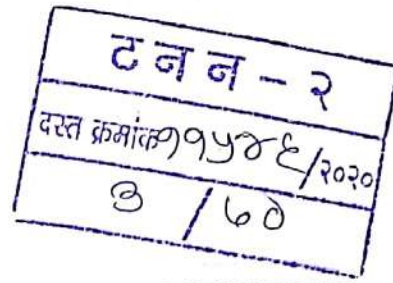 ट न न - २
दस्त क्रमांक ११५४६/२०२०
३ / ७०